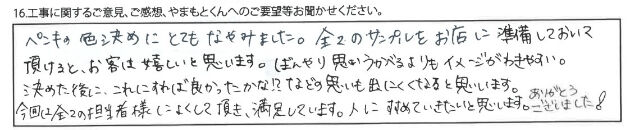 16.工事に関するご意見、ご感想、やまもとくんへのご要望等お聞かせください。
ペンキの色決めにとてもなやみました。全てのサンプルをお店に準備しておいて
頂けると、お客は嬉しいと思います。ぼんやり思いうかべるよりもイメージがわきやすい。
決めた後に、これにすれば良かったかな!?などの思いも出にくくなると思います。
今回は全ての担当者様によくして頂き、満足しています。人にすすめていきたいと思います。
ありがとう
ございました!